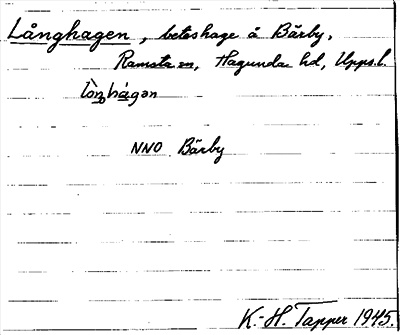 Långhagen, beteshage å Bärby,
Ramsta sn, Hagunda hd, Upps.l.
NNO Bärby
K.-H. Tapper 1945.